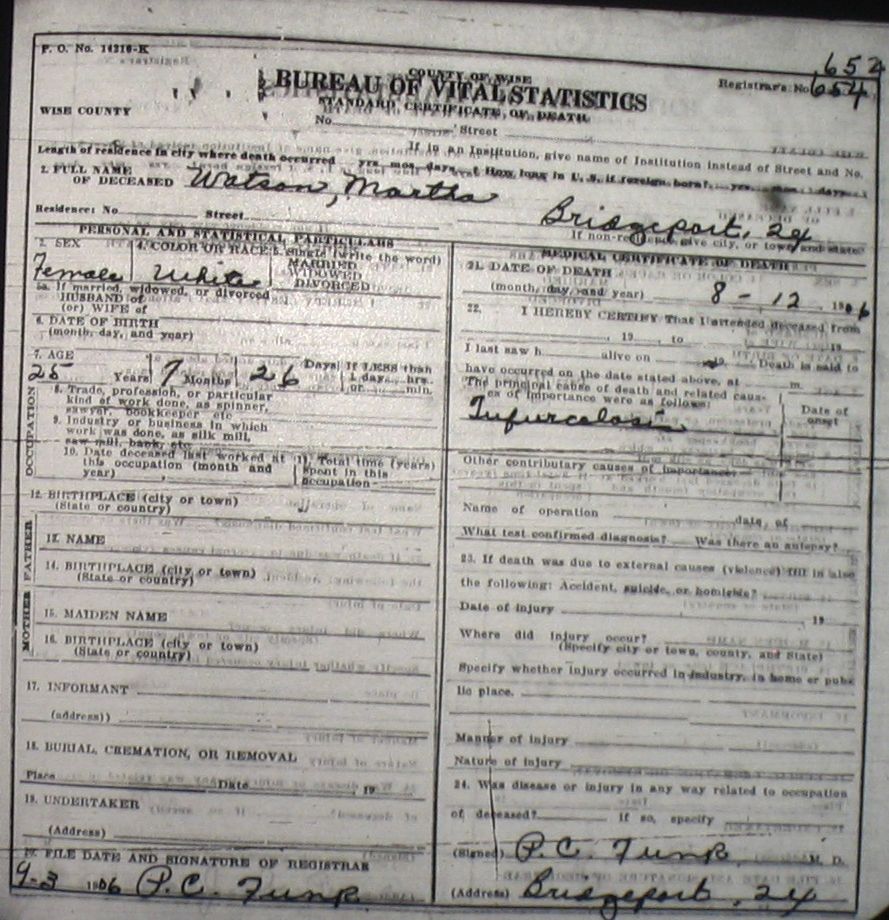 F. O. No. 14316-K
652
Registrar's No. 654
COUNTY OF WISE
BUREAU OF VITAL STATISTICS
STANDARD CERTIFICATE OF DEATH
WISE COUNTY
No. Street
If in an Institution, give name of Institution instead of Street and No.
Length of residence in city where death occurred yrs. mos. days. How long in U. S. if foreign born? yrs. mos. days
2. FULL NAME
OF DECEASED Watson, Martha
Residence: No Street Bridgeport,
If non-resident give city, or town, and state
PERSONAL AND STATISTICAL PARTICULARS
3. SEX
Female
4. COLOR OR RACE
White
5. Single (write the word)
MARRIED
WIDOWED
DIVORCED
5a. If married, widowed, or divorced
HUSBAND of
(or) WIFE of
6. DATE OF BIRTH
(month, day, and year)
7. AGE
25 Years 7 Months 26 Days
If LESS than
1 day hrs.
or min.
OCCUPATION
8. Trade, profession, or particular
kind of work done, as spinner,
sawyer, bookkeeper etc
9. Industry or business in which
work was done, as silk mill,
saw mill, bank, etc
10. Date deceased last worked at
this occupation (month and
year)
11. Total time (years)
spent in this
occupation
12. BIRTHPLACE (city or town)
(State or country)
FATHER
13. NAME
14. BIRTHPLACE (city or town)
(State or country)
MOTHER
15. MAIDEN NAME
16. BIRTHPLACE (city or town)
(State or country)
17. INFORMANT
(address))
18. BURIAL, CREMATION, OR REMOVAL
Place Date 19
19. UNDERTAKER
(Address)
20. FILE DATE AND SIGNATURE OF REGISTRAR
9-3 1906 P.C. Funk
MEDICAL CERTIFICATE OF DEATH
21. DATE OF DEATH
(month, day, and year) 8-12 1906
22. I HEREBY CERTIFY That I attended deceased from
19 to 19
I last saw h alive on 19 Death is said to
have occurred on the date stated above, at m.
The principal cause of death and related caus-
es of importance were as follows:
Date of
onset
Tufurcolosis
Other contributary causes of importance:
Name of operation date of
What test confirmed diagnosis? Was there an autopsy?
23. If death was due to external causes (violence) fill in also
the following: Accident, suicide, or homicide?
Date of injury 19
Where did injury occur?
(Specify city or town, county, and State)
Specify whether injury occurred in industry, in home or pub-
lic place.
Manner of injury
Nature of injury
24. Was disease or injury in any way related to occupation
of deceased? If so, specify
(Signed) P.C. Funk, M. D.
(Address) Bridgeport,